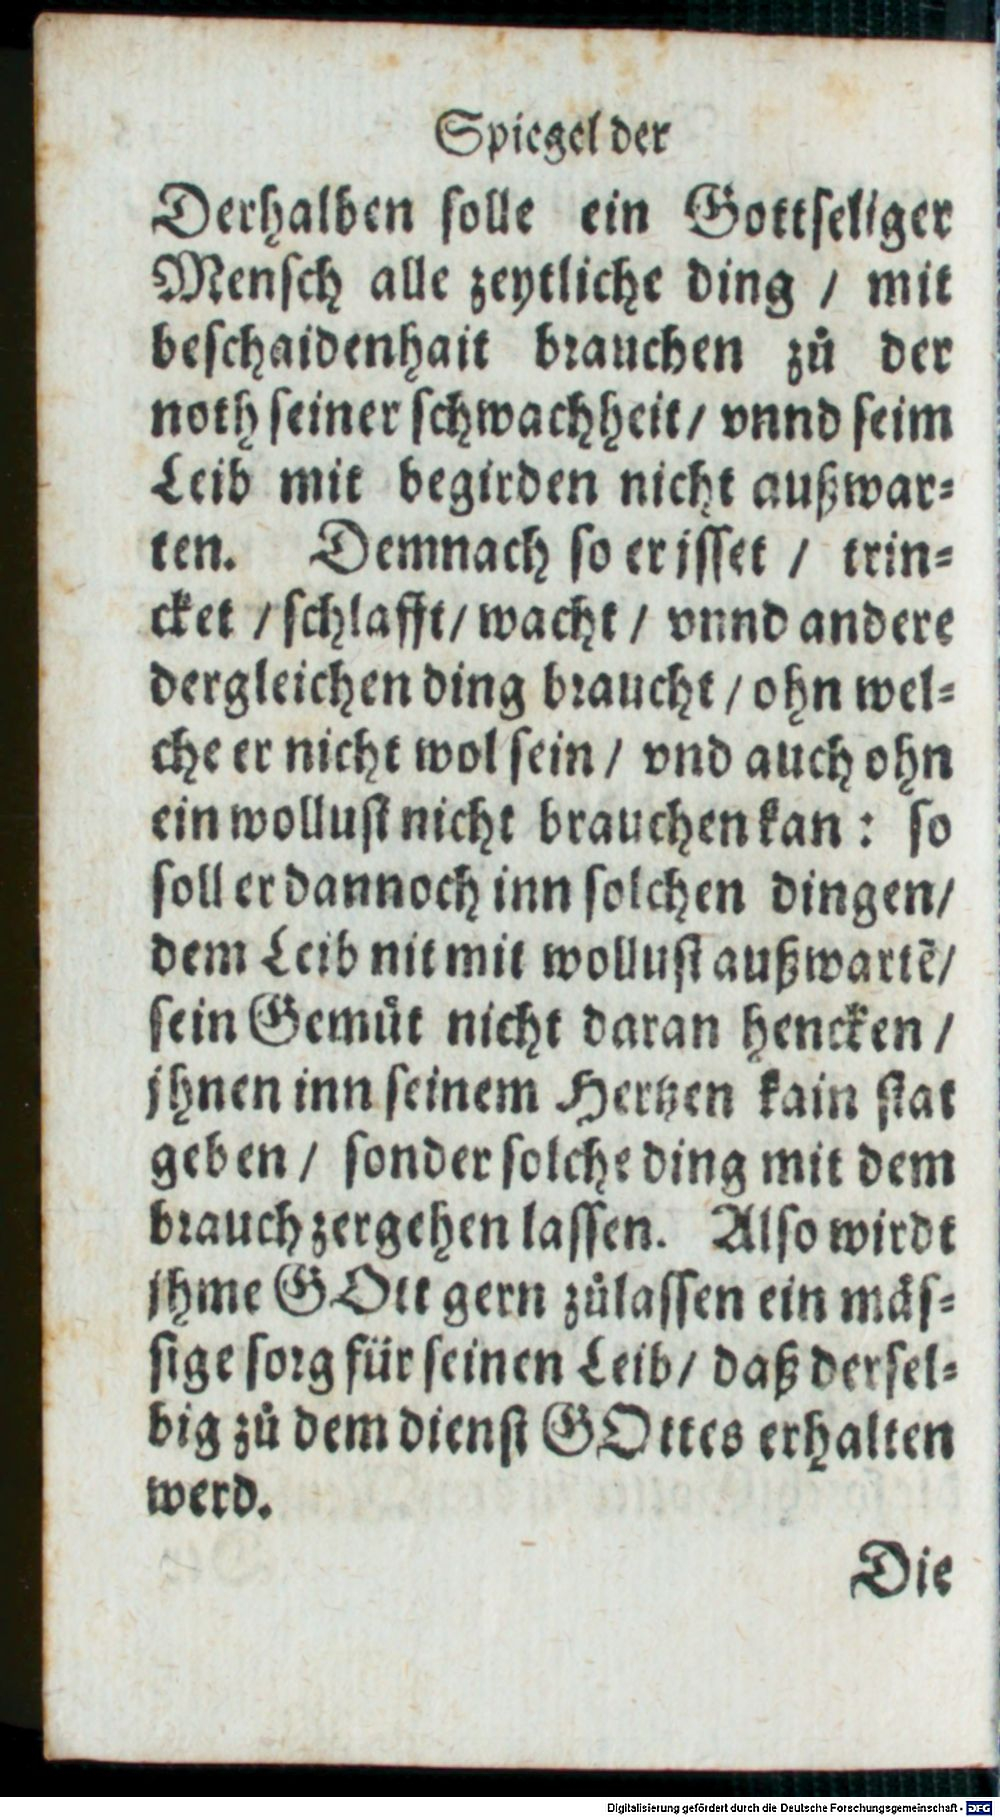 Spiegel der
Derhalben solle ein Gottseliger
Mensch alle zeytliche ding / mit
beschaidenhait brauchen zů der
noth seiner schwachheit / vnnd seim
Leib mit begirden nicht außwar⸗
ten. Demnach so er isset / trin⸗
cket / schlafft / wacht / vnnd andere
dergleichen ding braucht / ohn wel⸗
che er nicht wol sein / vnd auch ohn
ein wollust nicht brauchen kan : so
soll er dannoch inn solchen dingen /
dem Leib nit mit wollust außwartẽ /
sein Gemuͤt nicht daran hencken /
jhnen inn seinem Hertzen kain stat
geben / sonder solche ding mit dem
brauch zergehen lassen. Also wirdt
jhme GOtt gern zůlassen ein maͤs⸗
sige sorg für seinen Leib / daß dersel⸗
big zů dem dienst GOttes erhalten
werd.
Die
Digitalisierung gefördert durch die Deutsche Forschungsgemeinschaft - DFG